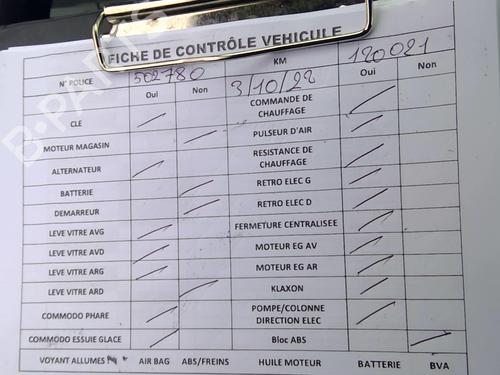 FICHE DE CONTRÔLE VEHICULE
N° POLICE 502780 KM 120021
Oui Non 3/10/22 Oui Non
CLE COMMANDE DE CHAUFFAGE
MOTEUR MAGASIN PULSEUR D'AIR
ALTERNATEUR RESISTANCE DE CHAUFFAGE
BATTERIE RETRO ELEC G
DEMARREUR RETRO ELEC D
LEVE VITRE AVG FERMETURE CENTRALISEE
LEVE VITRE AVD MOTEUR EG AV
LEVE VITRE ARG MOTEUR EG AR
LEVE VITRE ARD KLAXON
COMMODO PHARE POMPE/COLONNE DIRECTION ELEC
COMMODO ESSUIE GLACE Bloc ABS
VOYANT ALLUMES AIR BAG ABS/FREINS HUILE MOTEUR BATTERIE BVA